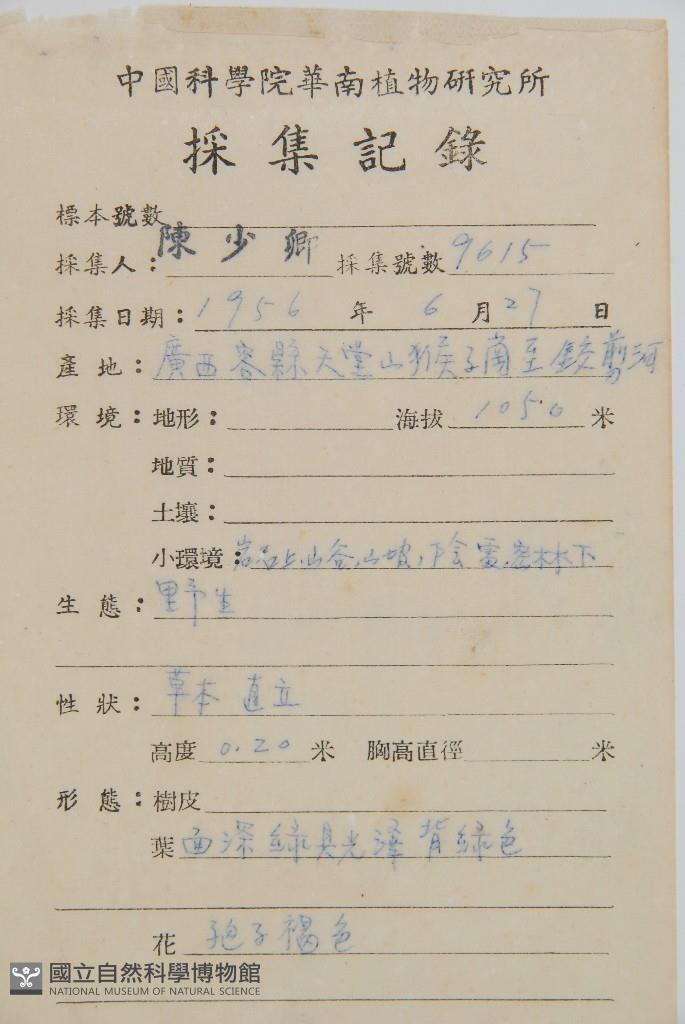 中國科學院華南植物研究所
採集記錄
標本號數
採集人：陳少卿 採集號數 9615
採集日期：1956 年 6 月 27 日
產地：廣西容縣天堂山猴子南至鉸剪河
環境：地形： 海拔 1050 米
地質：
土壤：
小環境：岩石上,山谷,山坡,下陰濕,密林下
生態：野生
性狀：草本 直立
高度 0.20 米 胸高直徑 米
形態：樹皮
葉 面深綠具光澤背綠色
花 孢子褐色
國立自然科學博物館
NATIONAL MUSEUM OF NATURAL SCIENCE